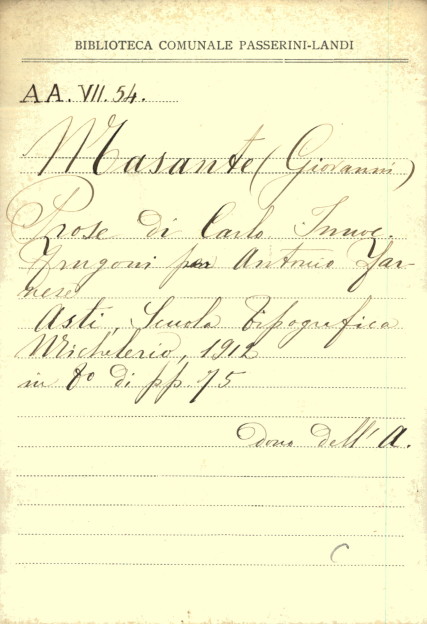 BIBLIOTECA COMUNALE PASSERINI-LANDI
AA. VII. 54.
Masante (Giovanni)
Prose di Carlo Innoc.
Frugoni per Antonio Far-
nese
Asti, Scuola Tipografica
Michelerio, 1912
in 8º di pp. 75
dono dell' A.